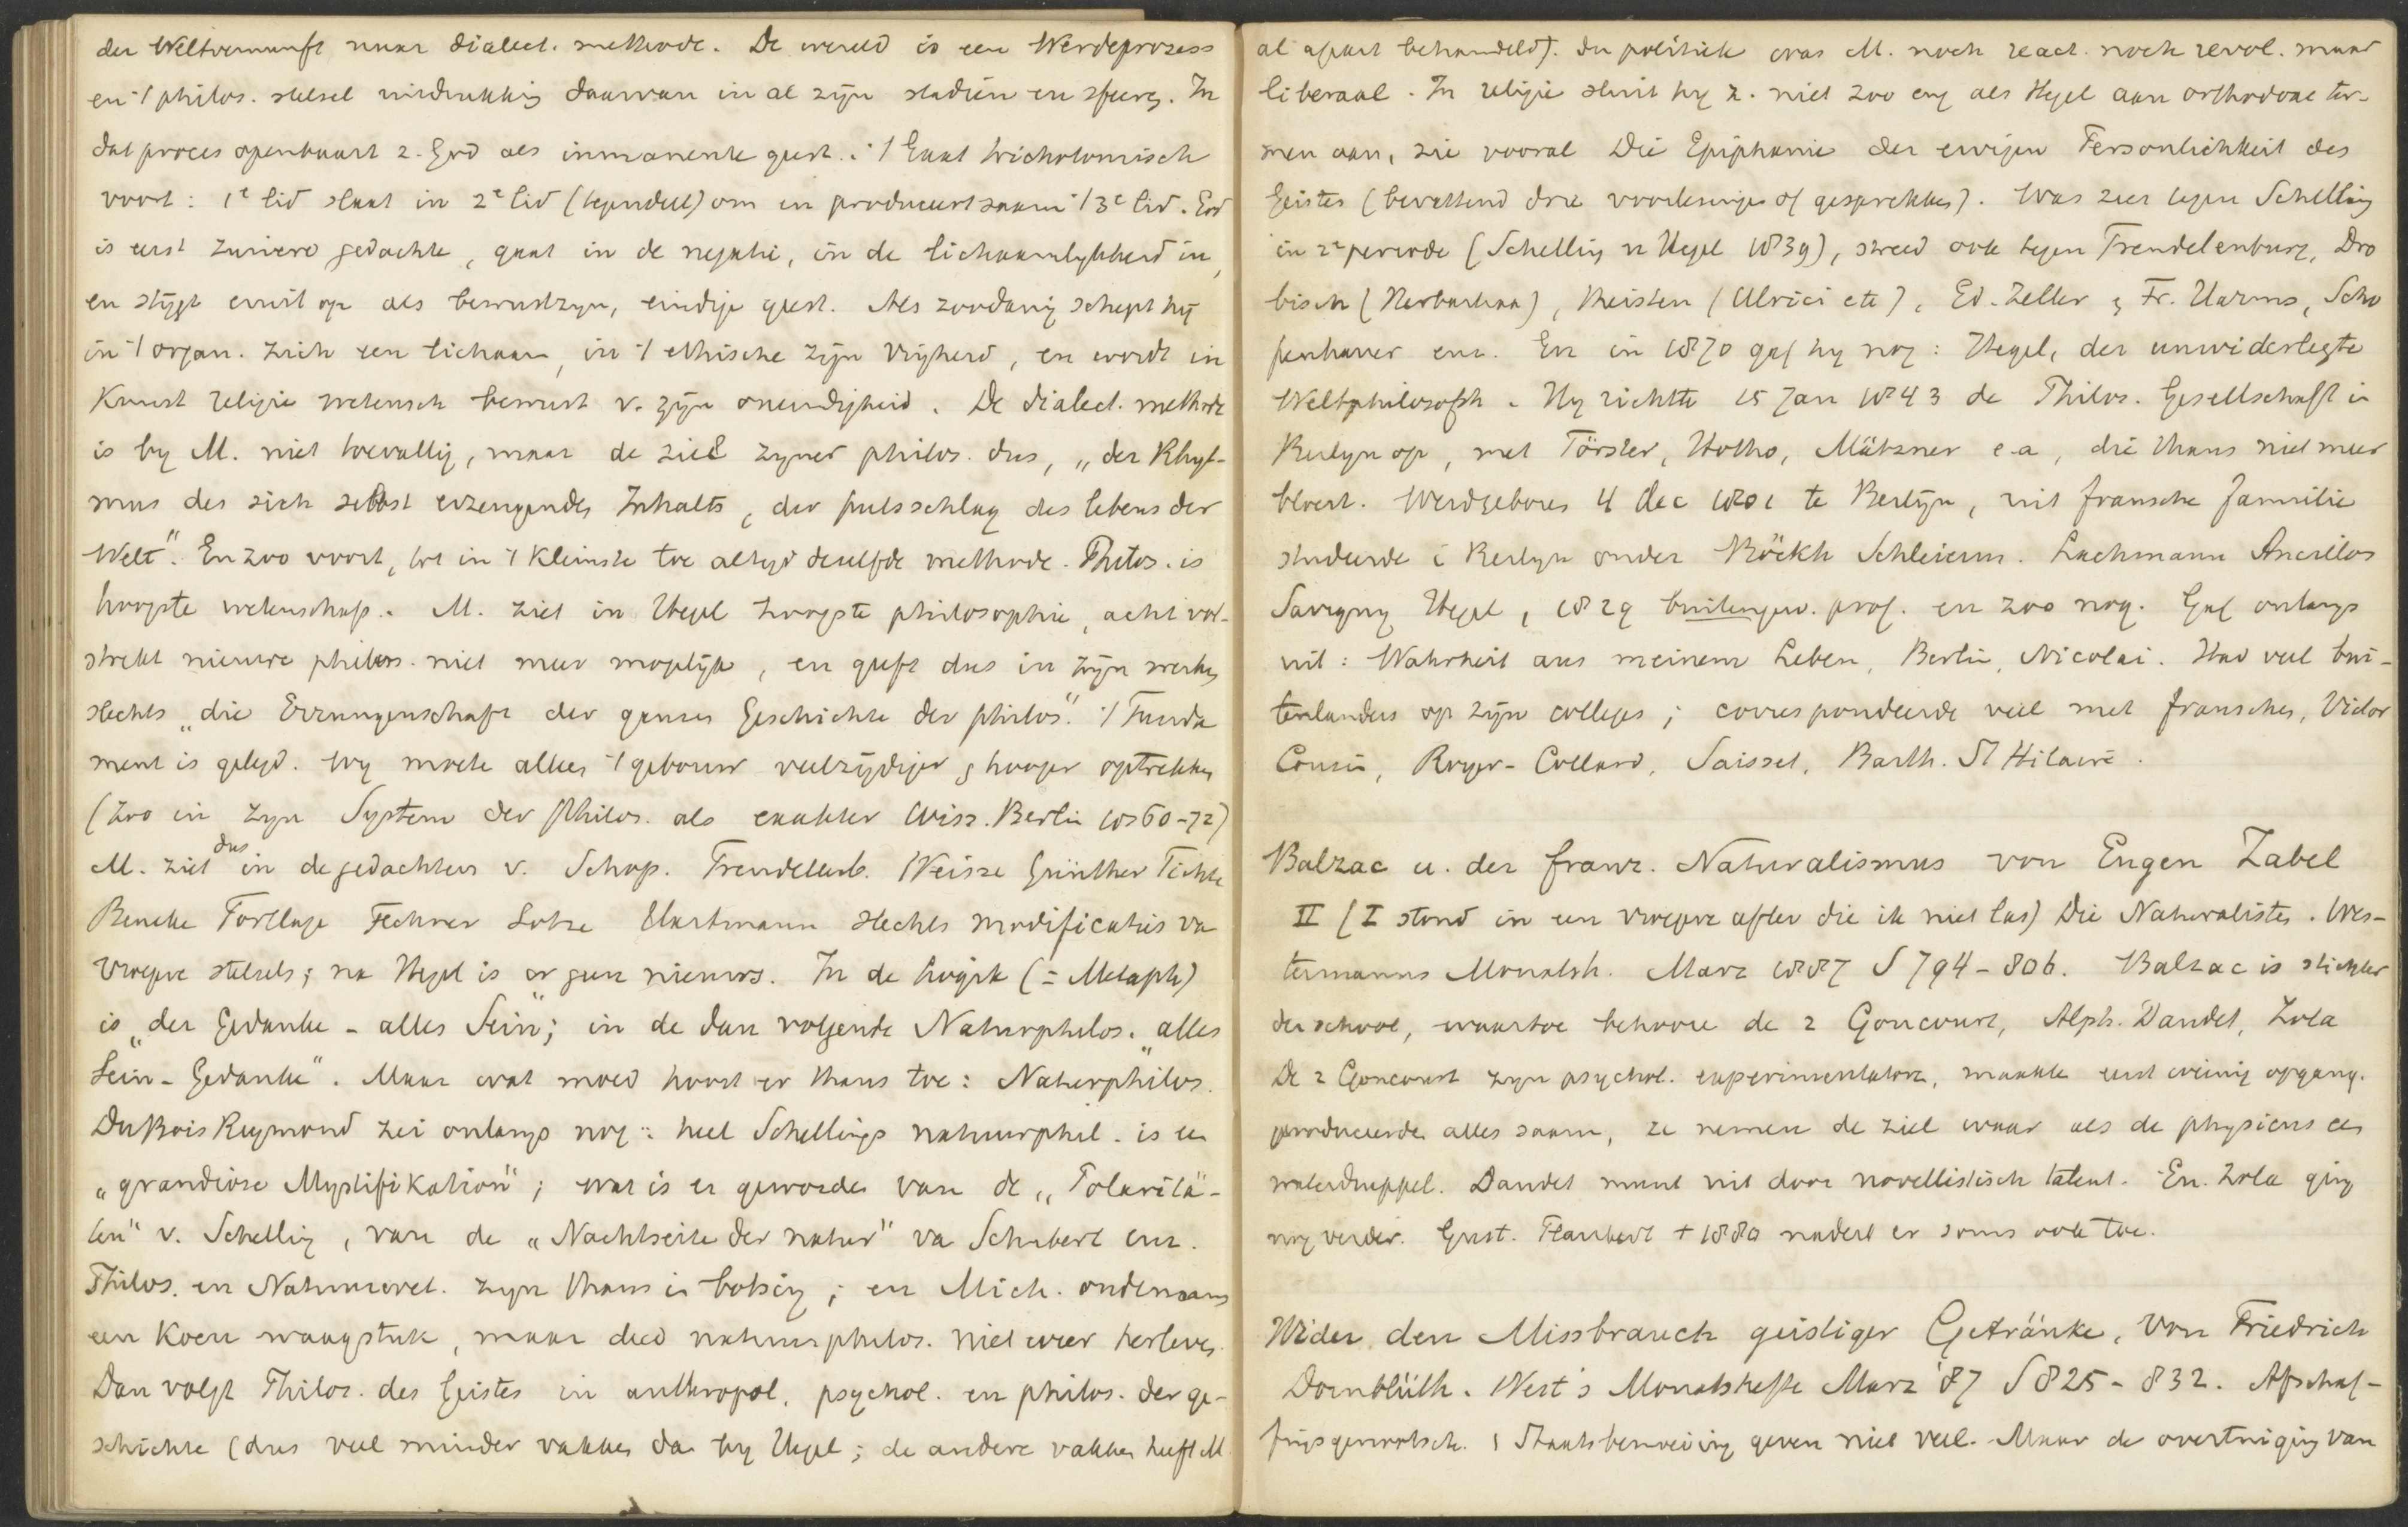 der Weltvernunft naar dialect. methode. De wereld is een Werdeprozess
en 't philos. stelsel uitdrukking daarvan in al zijn stadiën en sfeeren. In
dat proces openbaart z. God als inmanente geest. 't Gaat trichotomisch
voort: 1e lid slaat in 2e lid (tegendeel) om en produceert saam 't 3e lid. God
is eerst zuivere gedachte, gaat in de negatie, in de lichaamlykheid in,
en stijgt eruit op als bewustzyn, eindige geest. Als zoodanig schept hij
in 't organ. zich een lichaam, in 't ethische zijn vrijheid, en wordt in
Kunst religie wetensch bewust v. zijn oneindigheid. De dialect. methode
is by M. niet toevallig, maar de ziel zyner philos. dus, „der Rhyt-
mus des sich selbst erzeugenden Inhalts, der pulsschlag des lebens der
Welt". En zoo voort, tot in 't kleinste toe altyd dezelfde methode. Philos. is
hoogste wetenschap. M. ziet in Hegel hoogste philosophie, acht vol-
strekt nieuwe philos. niet meer mogelijk, en geeft dus in zijn werken
slechts „die Errungenschaft der ganzen Geschichte der philos". 't Funda
ment is gelegd. wy moeten alleen 't gebouw veelzijdiger & hooger optrekken
(zoo in zyn System der Philos. als exakter Wiss. Berlin 1860-72)
M. ziet dus in de gedachten v. Schop. Trendelenb. Weisze Günther Fichte
Beneke Fortlage Fechner Lotze Hartmann slechts modificaties va
vroegere stelsels; na Hegel is er geen nieuws. In de logik (= Metaph)
is „der Gedanke - alles Sein"; in de dan volgende Naturphilos. „alles
Sein - Gedanke". Maar wat moed hoort er thans toe: Naturphilos.
DuBois Reymond zei onlangs nog: heel Schellings natuurphil. is een
„grandiose Mystifikation"; wat is er geworden van de „Polaritä-
ten" v. Schelling, van de „Nachtseite der natur" va Schubert enz.
Philos. en Natuurwet. zyn thans in botsing; en Mich. ondernam
een koen waagstuk, maar deed natuurphilos. niet weer herleven.
Dan volgt Philos. des Geistes in anthropol. psychol. en philos. der ge-
schichte (dus veel minder vakken da by Hegel; de andere vakken heeft M.
al apart behandeld). In politiek was M. noch react. noch revol. maar
liberaal. In religie sluit hy z. niet zoo eng als Hegel aan orthodoxe ter-
men aan, zie vooral Die Epiphanie der ewigen Persönlichkeit des
Geistes (bevattend drie voorlezingen of gesprekken). Was zeer tegen Schelling
in 2e periode (Schelling u Hegel 1839), streed ook tegen Trendelenburg, Dro
bisch (Herbartiaa), theisten (Ulrici etc), Ed. Zeller & Fr. Harms, Scho
penhauer enz. En in 1870 gaf hy nog: Hegel, der unwiderlegte
Weltphilosoph. Hy richtte 15 Jan 1843 de Philos. Gesellschaft in
Berlyn op, met Förster, Hotho, Mätzner e.a, die thans niet meer
bloeit. Werd geboren 4 dec 1801 te Berlijn, uit fransche familie
studeerde i Berlyn onder Böckh Schleierm. Lachmann Ancillon
Savigny Hegel, 1829 buitengew. prof. en zoo nog. Gaf onlangs
uit: Wahrheit aus meinem Leben, Berlin, Nicolai. Had veel bui-
tenlanders op zijn colleges; correspondeerde veel met franschen, Victor
Cousin, Royer-Collard, Saisset, Barth. St Hilaire.
Balzac u. der franz. Naturalismus von Eugen Zabel
II (I stond in een vroegere aflev die ik niet las) Die Naturalisten. Wes-
termanns Monatsh. Marz 1887 S 794-806. Balzac is stichter
der school, waartoe behooren de 2 Goncourt, Alph. Daudet, Zola
De 2 Goncourt zyn psychol. experimentators, maakte eerst weinig opgang.
produceerden alles saam, ze nemen de ziel waar als de physicus een
waterdruppel. Daudet munt uit door novellistisch talent. En. Zola ging
nog verder. Gust. Flaubert + 1880 nadert er soms ook toe.
Wider den Missbrauch geistiger Getränke, von Friedrich
Dornblüth. West's Monatshefte Marz '87 S 825-832. Afschaf-
fingsgenootsch. & Staatsbemoeiing geven niet veel. Maar de overtuiging van